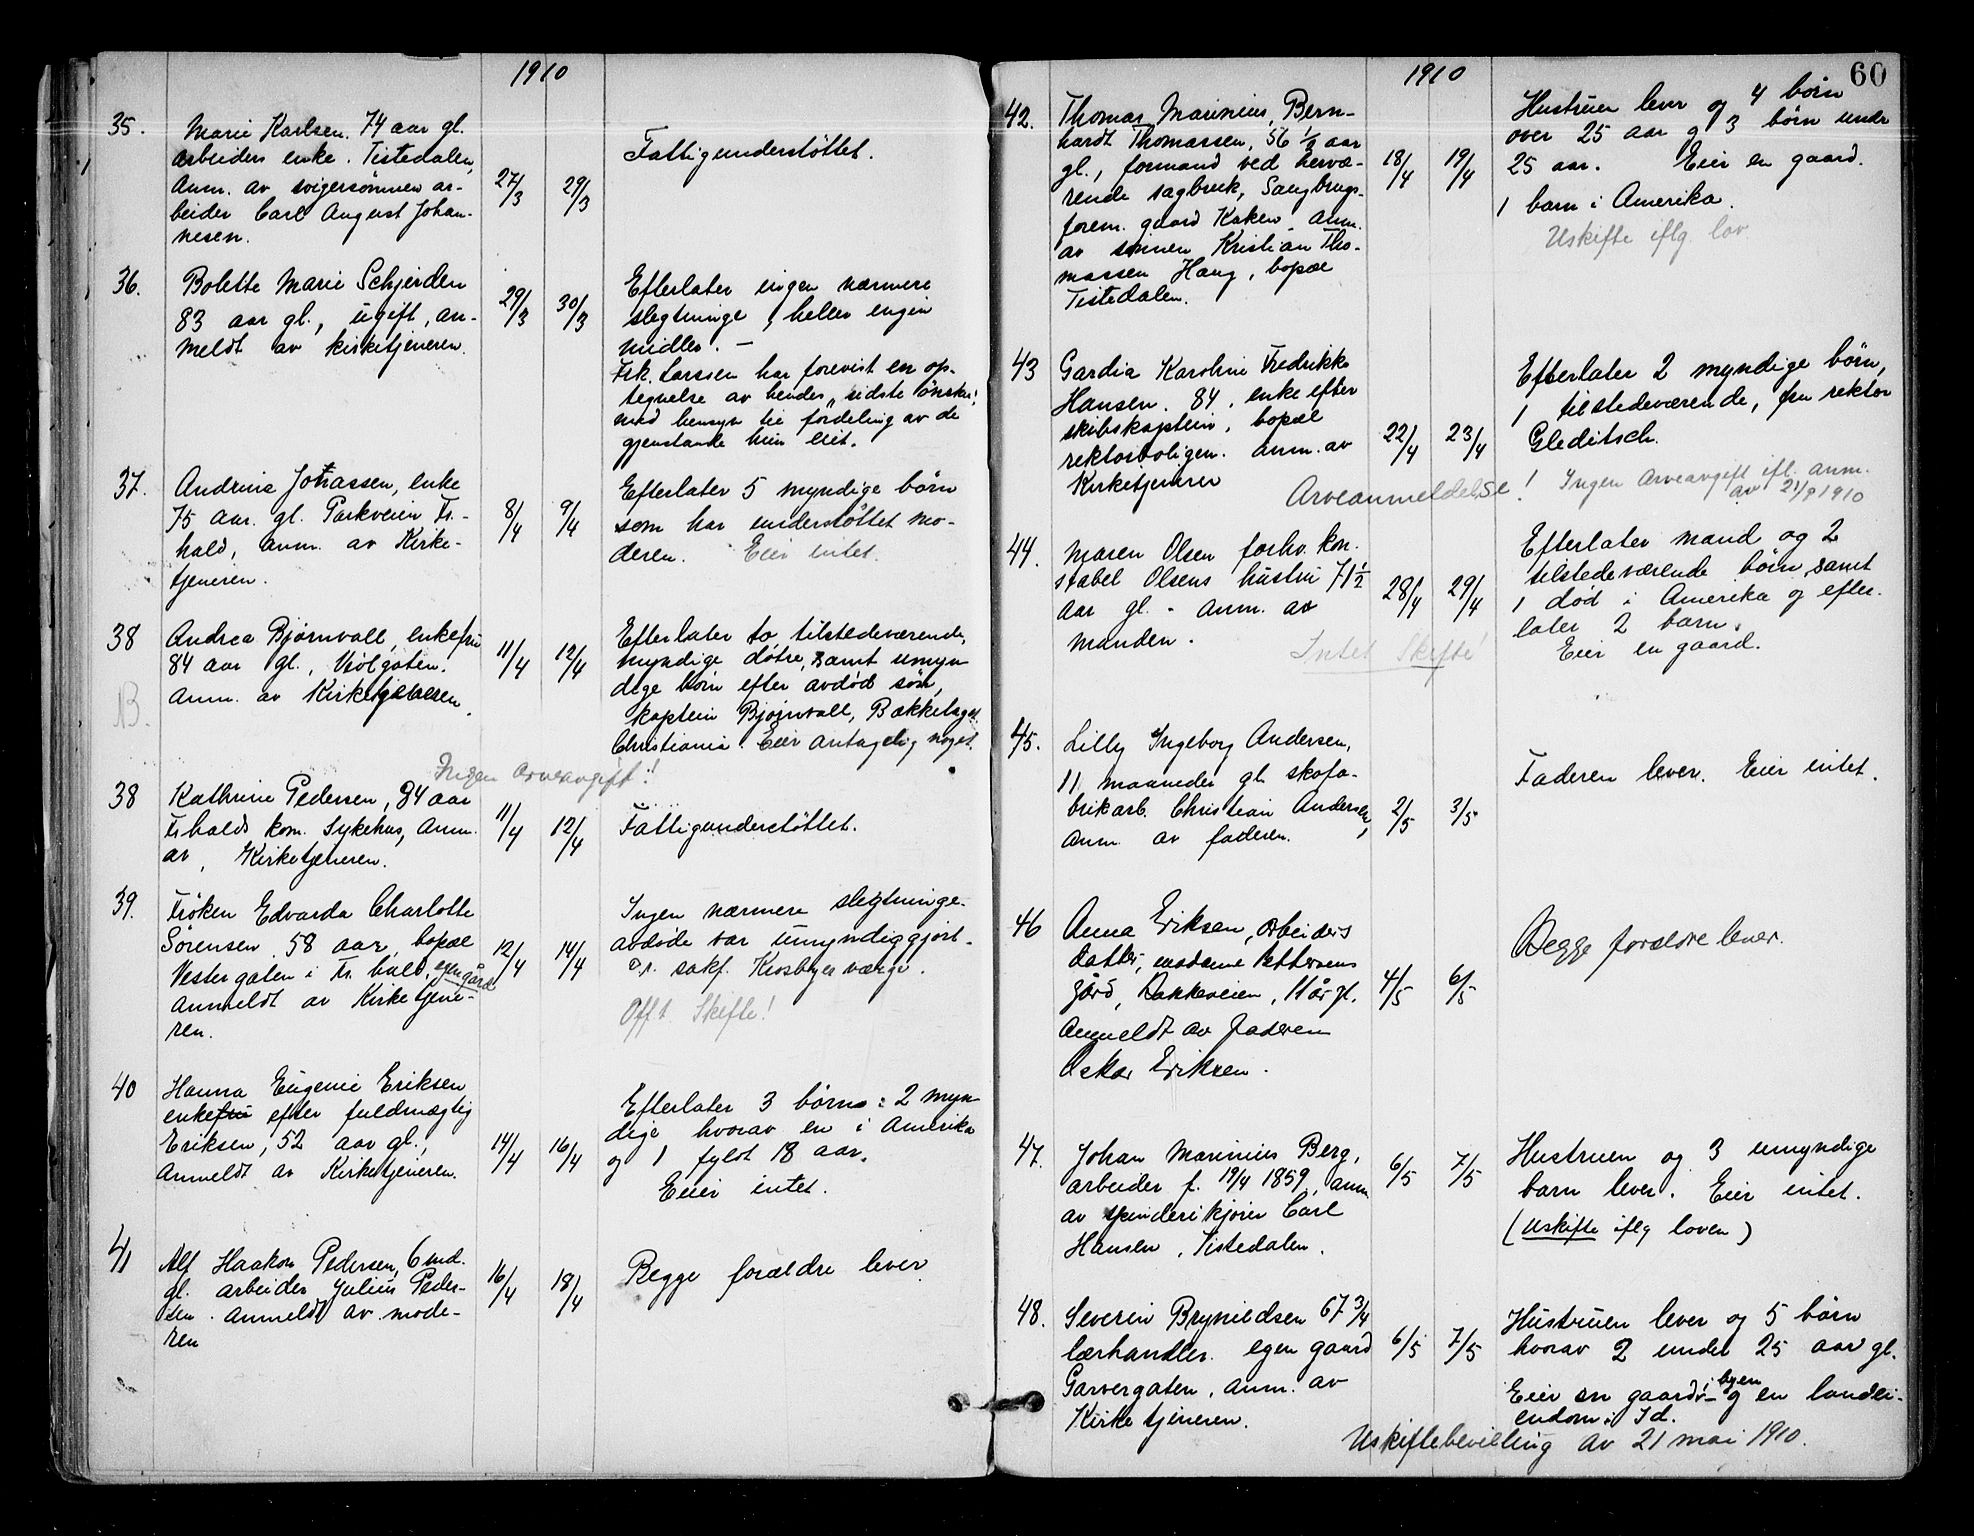 1910
35.
Marie Karlsen. 74 aar gl.
arbeiders enke. Tistedalen,
Anm. av svigersønnen ar-
beider Carl August Johan-
nesen.
27/3 29/3
Fattigunderstöttet.
36.
Bolette Marie Schjerden
83 aar gl., ugift, an-
meldt av kirketjeneren.
29/3 30/3
Efterlater ingen nærmere
slegtninge, heller ingen
midler. –
Frk. Larsen har forevist en op-
tegnelse av hendes „sidste ønsker"
med hensyn til fordeling av de
gjenstande hun eiet.
37.
Andrine Johassen, enke
75 aar. gl. Parkveien Fr.-
hald, anm. av Kirke-
tjeneren.
8/4 9/4
Efterlater 5 myndige børn
som har understøttet mo-
deren. Eier intet.
38
Andrea Bjørnvall, enkefru
84 aar gl., Violgaten.
Anm. av Kirketjeneren.
B.
11/4 12/4
Efterlater to tilstedeværende,
myndige døtre, samt umyn-
dige børn efter avdød søn,
kaptein Bjørnvall, Bækkelaget
Christiania. Eier antagelig noget.
Ingen arveavgift!
38
Kathrine Pedersen, 84 aar
Fr.halds kom. Sykehus, Anm.
av Kirketjeneren.
11/4 12/4
Fattigunderstöttet.
39.
Frøken Edvarda Charlotte
Sørensen 58 aar, bopæl
Vestergaten i Fr.hald, egen gård
Anmeldt av Kirketjene-
ren.
12/4 14/4
Ingen nærmere slegtninge.
avdøde var umyndiggjort.
O.r. sakf. Krosbyer værge.
Off. Skifte!
40
Hanna Eugenie Eriksen
enkefru efter fuldmægtig
Eriksen, 52 aar gl.,
Anmeldt av Kirketjeneren.
14/4 16/4
Efterlater 3 børn: 2 myn-
dige hvorav en i Amerika
og 1 fyldt 18 aar.
Eier intet.
41
Alf Haakon Pedersen, 6 md.
gl. arbeider Julius Peder-
sen. Anmeldt av mode-
ren
16/4 18/4
Begge forældre lever
60
1910
42.
Thomas Marinius Bern-
hardt Thomassen, 56 1/2 aar
gl., formand ved hervæ-
rende sagbruk, Saugbrugs-
foren. gaard Kaken. Anm.
av sønnen Kristian Tho-
massen Haug, bopæl
Tistedalen.
18/4 19/4
Hustruen lever og 4 børn
over 25 aar og 3 børn under
25 aar. Eier en gaard.
1 barn i Amerika.
Uskifte iflg. lov
43
Gardia Karoline Fredrikke
Hansen. 84, enke efter
skibskaptein, bopæl
rektorboligen. anm. av
Kirketjener
22/4 23/4
Efterlater 2 myndige børn,
1 tilstedeværende, fru rektor
Gleditsch.
Arveanmeldelse! Ingen Arveavgift ifl. anm.
av 21/9 1910
44.
Maren Olsen forhv. kon-
stabel Olsens hustru 71 1/2
aar gl. - anm. av
manden.
28/4 29/4
Efterlater mand og 2
tilstedeværende børn, samt
1 død i Amerika og efter-
later 2 barn.
Eier en gaard.
Intet Skifte!
45.
Lilly Ingeborg Andersen,
11 maaneder gl. skofa-
brikarb. Christian Andersen,
anm. av faderen.
2/5 3/5
Faderen lever. Eier intet.
46
Anna Eriksen, arbeiders
datter, madame Pettersens
gård, Bakkeveien, 11 år gl.
Anmeldt av faderen
Oskar Eriksen.
4/5 6/5
Begge forældre lever.
47.
Johan Marinius Berg,
arbeider f. 19/4 1859, anm.
av spinderikjører Carl
Hansen, Tistedalen.
6/5 7/5
Hustruen og 3 umyndige
barn lever. Eier intet.
(Uskifte iflg loven)
48.
Severin Brynildsen 67 3/4
lærhandler. egen gaard
Garvergaten, anm. av
Kirketjeneren.
6/5 7/5
Hustruen lever og 5 børn
hvorav 2 under 25 aar gl.
Eier en gaard i byen og en landei-
endom i Id.
Uskiftebevilling av 21 mai 1910.